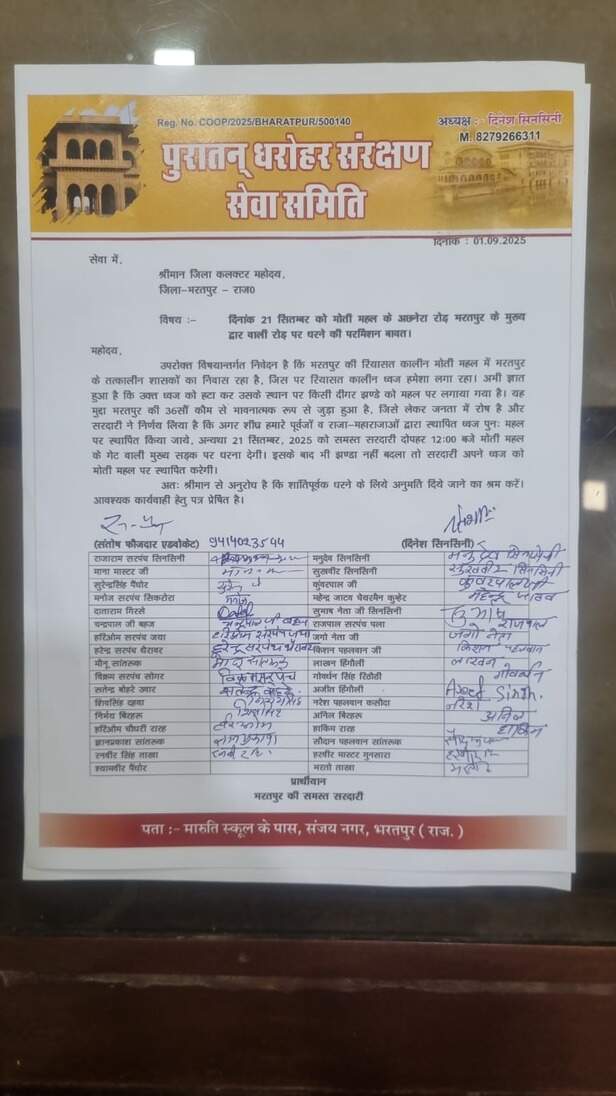 Reg. No. COOP/2025/BHARATPUR/500140
अध्यक्ष : दिनेश सिनसिनी
M. 8279266311
पुरातन् धरोहर संरक्षण
सेवा समिति
दिनांक : 01.09.2025
सेवा में,
श्रीमान जिला कलक्टर महोदय,
जिला-भरतपुर - राज0
विषय :- दिनांक 21 सितम्बर को मोती महल के अछनेरा रोड़ भरतपुर के मुख्य
द्वार वाली रोड़ पर धरने की परमिशन बावत।
महोदय,
उपरोक्त विषयान्तर्गत निवेदन है कि भरतपुर की रियासत कालीन मोती महल में भरतपुर
के तत्कालीन शासकों का निवास रहा है, जिस पर रियासत कालीन ध्वज हमेशा लगा रहा। अभी ज्ञात
हुआ है कि उक्त ध्वज को हटा कर उसके स्थान पर किसी दीगर झण्डे को महल पर लगाया गया है। यह
मुद्दा भरतपुर की 36सौं कौम से भावनात्मक रूप से जुड़ा हुआ है, जिसे लेकर जनता में रोष है और
सरदारी ने निर्णय लिया है कि अगर शीघ्र हमारे पूर्वजों व राजा-महाराजाओं द्वारा स्थापित ध्वज पुनः महल
पर स्थापित किया जाये, अन्यथा 21 सितम्बर, 2025 को समस्त सरदारी दोपहर 12:00 बजे मोती महल
के गेट वाली मुख्य सड़क पर धरना देगी। इसके बाद भी झण्डा नहीं बदला तो सरदारी अपने ध्वज को
मोती महल पर स्थापित करेगी।
अतः श्रीमान से अनुरोध है कि शांतिपूर्वक धरने के लिये अनुमति दिये जाने का श्रम करें।
आवश्यक कार्यवाही हेतु पत्र प्रेषित है।
(संतोष फौजदार एडवोकेट) 9414023544 (दिनेश सिनसिनी)
राजाराम सरपंच सिनसिनी मनुदेव सिनसिनी मनुदेव सिनसिनी
माना मास्टर जी सुखवीर सिनसिनी सुखवीर सिनसिनी
सुरेन्द्रसिंह पैंघोर कुंवरपाल जी कुंवरपाल जी
मनोज सरपंच सिकरोरा मनोज महेन्द्र जाटव चेयरमैन कुम्हेर महेन्द्र जाटव
दाताराम गिरसे सुभाष नेता जी सिनसिनी सुभाष
चन्द्रपाल जी बहज राजपाल सरपंच पला राजपाल
हरिओम सरपंच जघा हरिओम सरपंच जघा जगो नेता जी जगो नेता
हरेन्द्र सरपंच धैरावर हरेन्द्र सरपंच किशन पहलवान जी किशन पहलवान
मौनू सांतरूक लाखन हिंगोली लाखन
विक्रम सरपंच सोगर विक्रम सरपंच गोवर्धन सिंह रिठौठी गोवर्धन
सतेन्द्र बोहरे ज्वार अजीत हिंगोली Ajeet Singh.
शिवसिंह दहवा नरेश पहलवान कसौदा नरेश
निर्भय बिरहरू अनिल बिरहरू अनिल
हरिओम चौधरी रारह हरिओम हाकिम रारह हाकिम
ज्ञानप्रकाश सांतरूक सौदान पहलवान सांतरूक
रनवीर सिंह ताखा हरवीर मास्टर गुनसारा
श्यामवीर पैंघोर भरतो ताखा
प्रार्थीयान
भरतपुर की समस्त सरदारी
पता :- मारुति स्कूल के पास, संजय नगर, भरतपुर ( राज. )